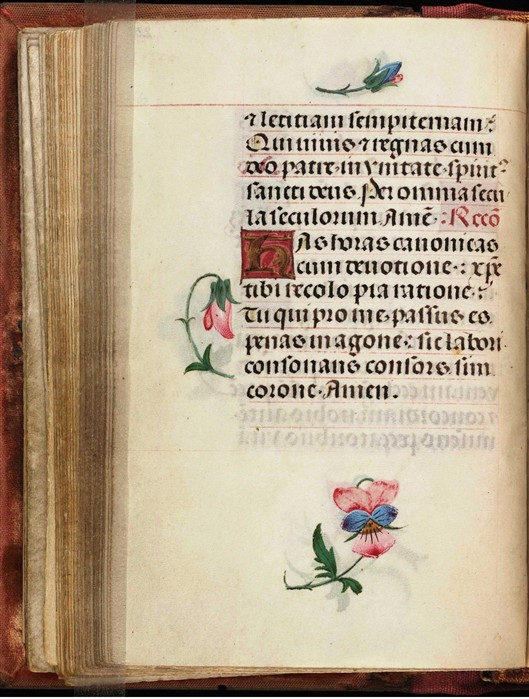 ⁊ letitiam sempiternam:
Qui viuis ⁊ regnas cum
deo patre in vnitate spirit⁹
sancti deus. Per omnia secu
la seculorum Amē. Recō
HAs horas canonicas
cum deuotione: xp̄e
tibi recolo pia ratione:
Tu qui pro me passus es
penas in agone: sic labori
consonans consors sim
corone. Amen.